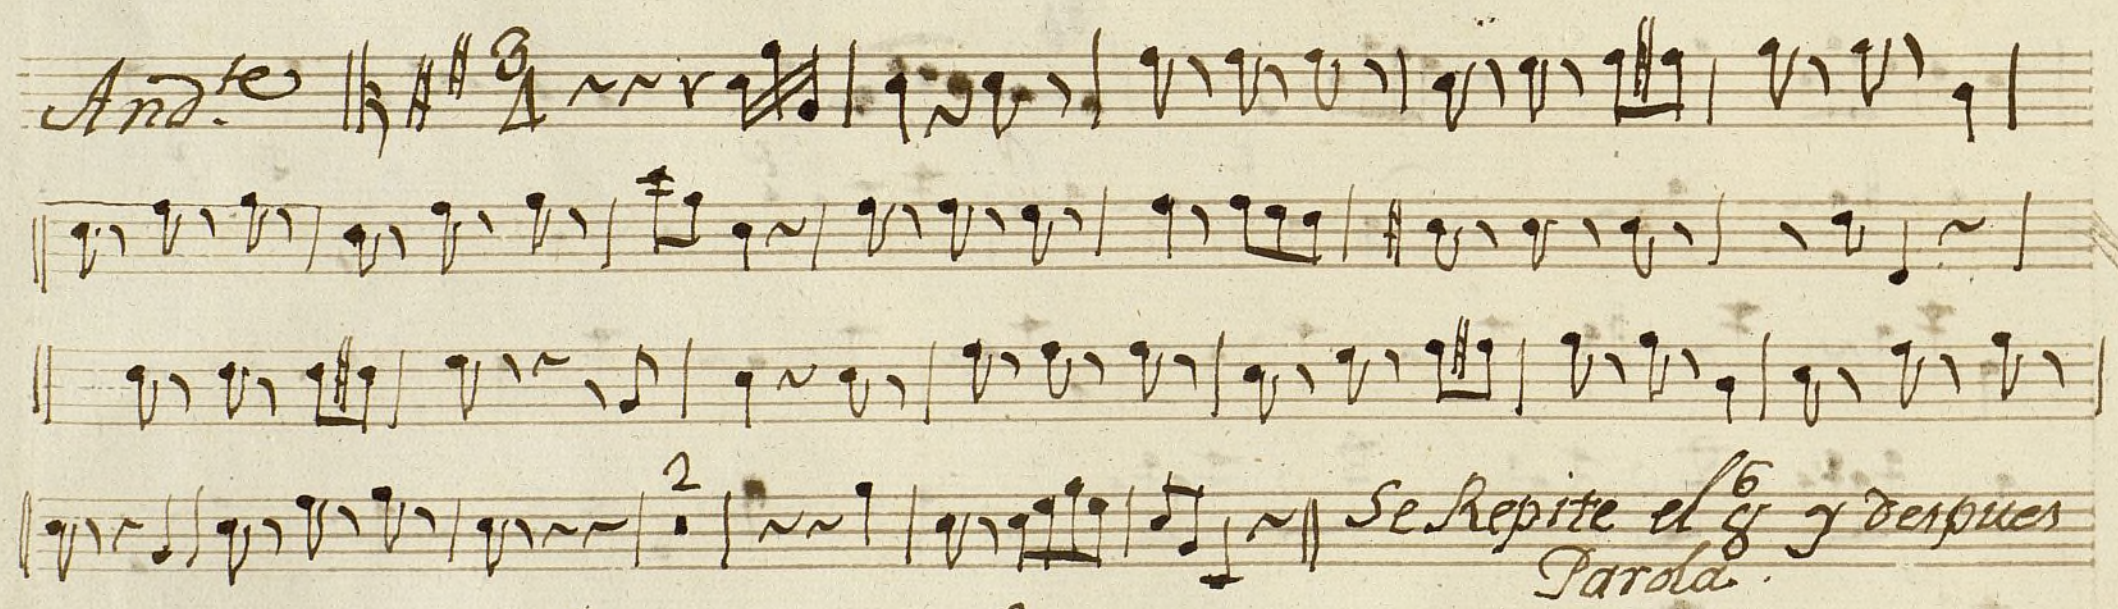 And.te 3/4
2
Se Repite el 6/8 y despues
Parola.